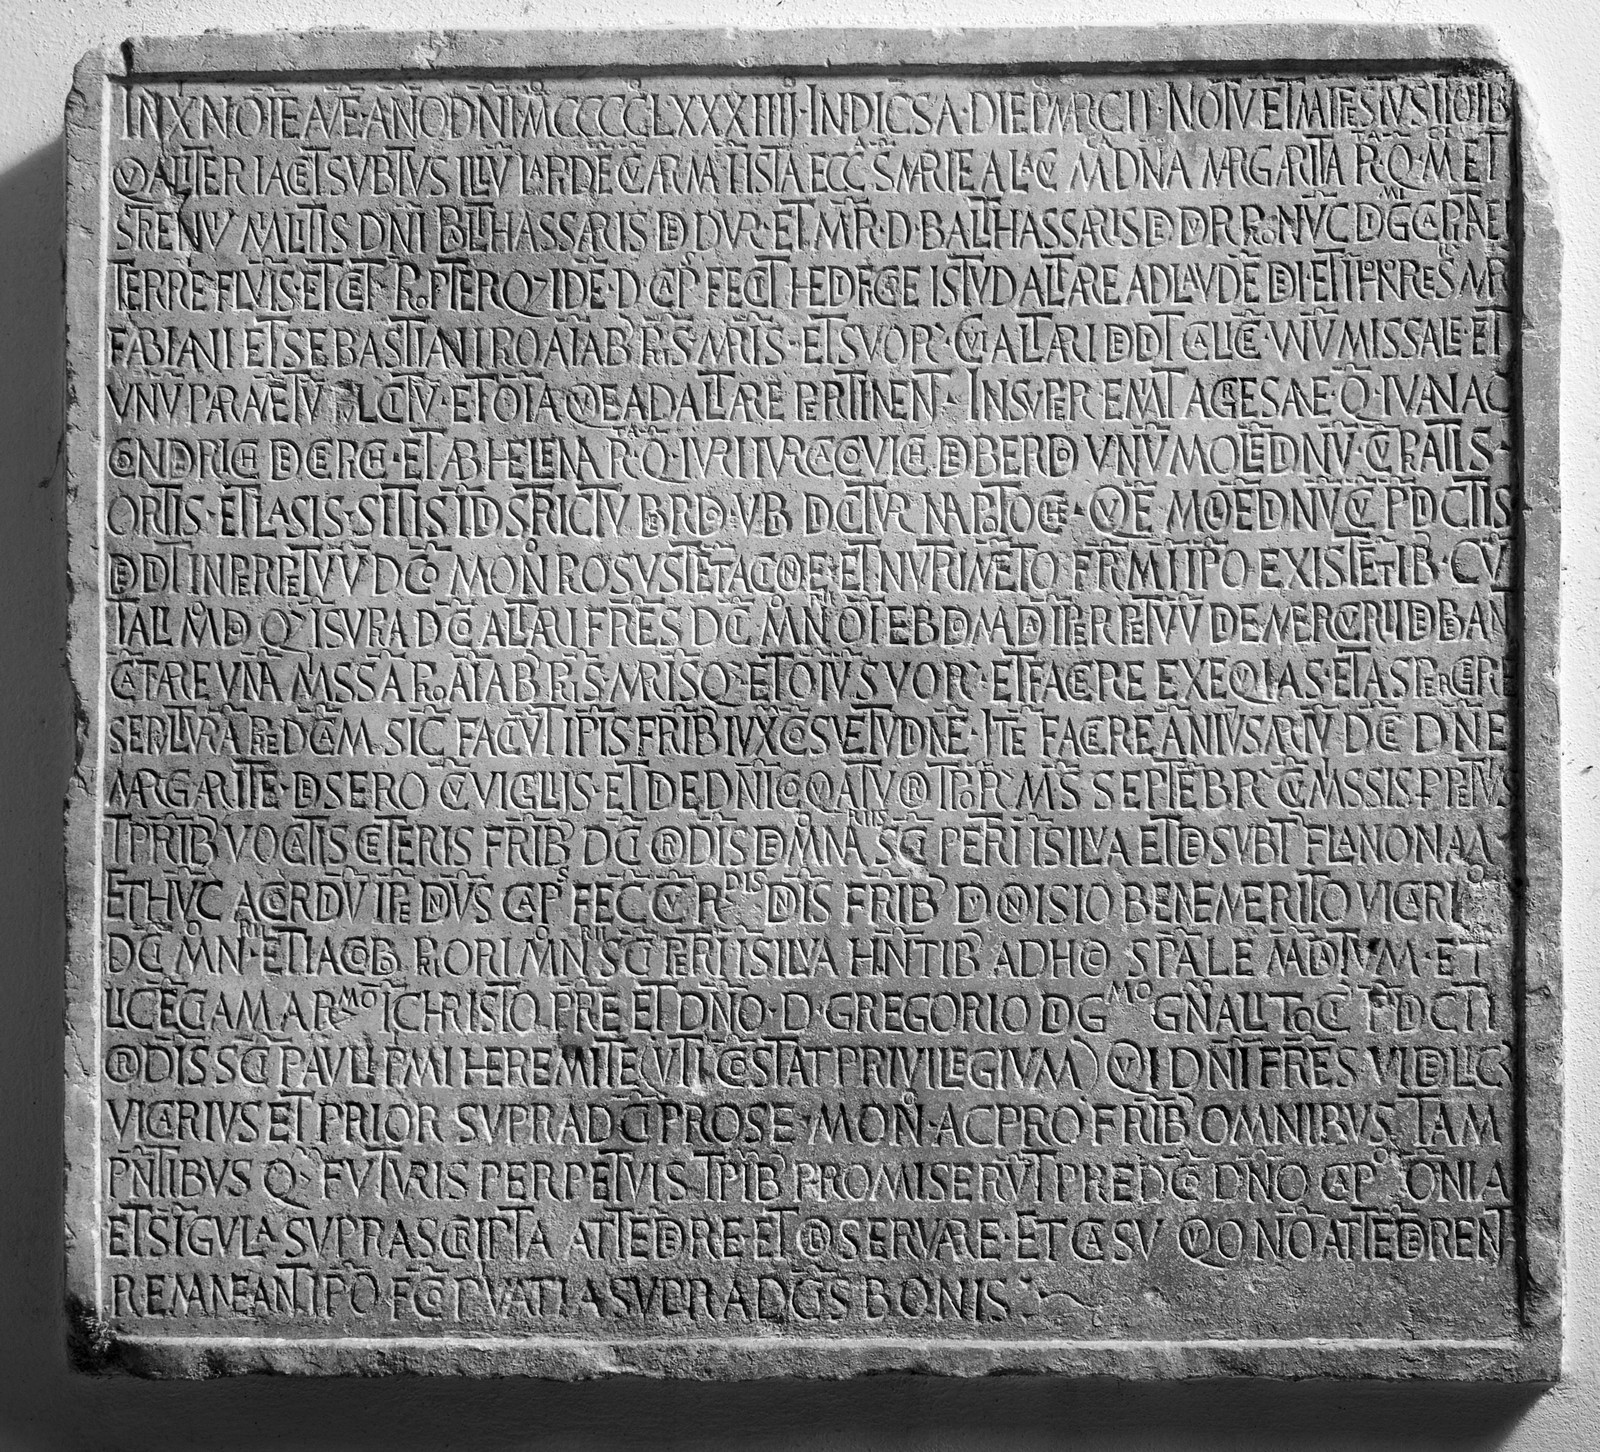 IN XṔI NOĪE AME ANO DNI MCCCCLXXXIIII INDICSA DIE MARCII NOTV ET MAIFESTV SIT OIIB
QALITER IACET SVBTVS ILLV LARDE CV ARMA IISTA ECC S MARIE A LACV M DNA MARGARITA RQM ET
STRENV MILITIS DNI BALTHASSARIS DE DVR ET MR D BALTHASSARIS DE DVR PRO NVC DIG CAPNE
TERRE FLVIS ET CET PROPTER Q IDE D CAP FECIT HEDIFICRE ISTVD ALTARE AD LAVDE DEI ET I HONORE S MR
FABIANI ET SEBASTIANI PRO AIAB PRIS MRIS ET SVOR CVI ALTARI DEDIT CALICE VNV MISSALE ET
VNV PARAMETV ET OIA QVE AD ALTARE PERTINENT INSVPER EMIT AGRES A EQ IVAN AC
CONDRICH DE CERCH ET AB HELENA RQ IVRII IVRCACOVICH DE BERDO VNV MOLEDNV CV RATIS
ORTIS ET LASIS SITIS I DISRICTV BERDO VBI DICITVR NA POTOCE QVE MOLEDNV CV PDICTIS
DEDIT IN PERPETVV DCO MON RO SVSTETACIONE ET NVRIMETO FRM I IPO EXISTETIB CV
TALI MDO Q ISVPRA DCO ALTARI FRES DCI MN OI EBDOMADA I PERPETVV DE MERCVRII DEBANT
CATARE VNA MSSA PRO AIAB PRIS MRISQ ET OIVS VOR ET FACERE EXEQIAS ET ASPERGERE
SEPVLTVRA PREDCAM SIC FACIVT IPIS FRIB IVX COSVETVDNE ITE FACERE ANIVSARIV DCE DNE
MARGARITE DE SERO CV VIGLIIS ET DE DNICO QATVOR TPOR MS SEPTEBR CV MSSIS PPETVIS
TPRIB VOCATIS CETERIS FRIB DCI ORDIS DE MNARIIS SCI PETRI I SILVA ET DE SVBT FLANONAM
ET HVC ACORDV IPE DNVS CAPS FECC CV RDIS DNIS FRIB DVONISIO BENEMERITO VICARIO
DCI MNRII ET IACOBO PRIORI MNRII SCI PETRI I SILVA HNTIB AD HOC SPALE MADATVM ET
LICECIAM A RMO I CHRISTO PRE ET DNO D GREGORIO DIG MO GNALI TOCI PDCTI
ORDIS SCI PAVLI PMI HEREMITE VTI COSTAT PRIVILEGIVM) QI DNI FRES VIDELICZ
VICARIVS ET PRIOR SVPRADCI PRO SE MON AC PRO FRIB OMNIBVS TAM
PNTIBVS Q FVTVRIS PERPETVIS TPIB PROMISERVT PREDCO DNO CAPO ONIA
ET SIGVLA SVPRASCRIPTA ATTEDERE ET OBSERVARE ET CASV QVO NO ATTEDERENT
REMANEANT IPO FCO PVATI A SVPRADCIS BONIS